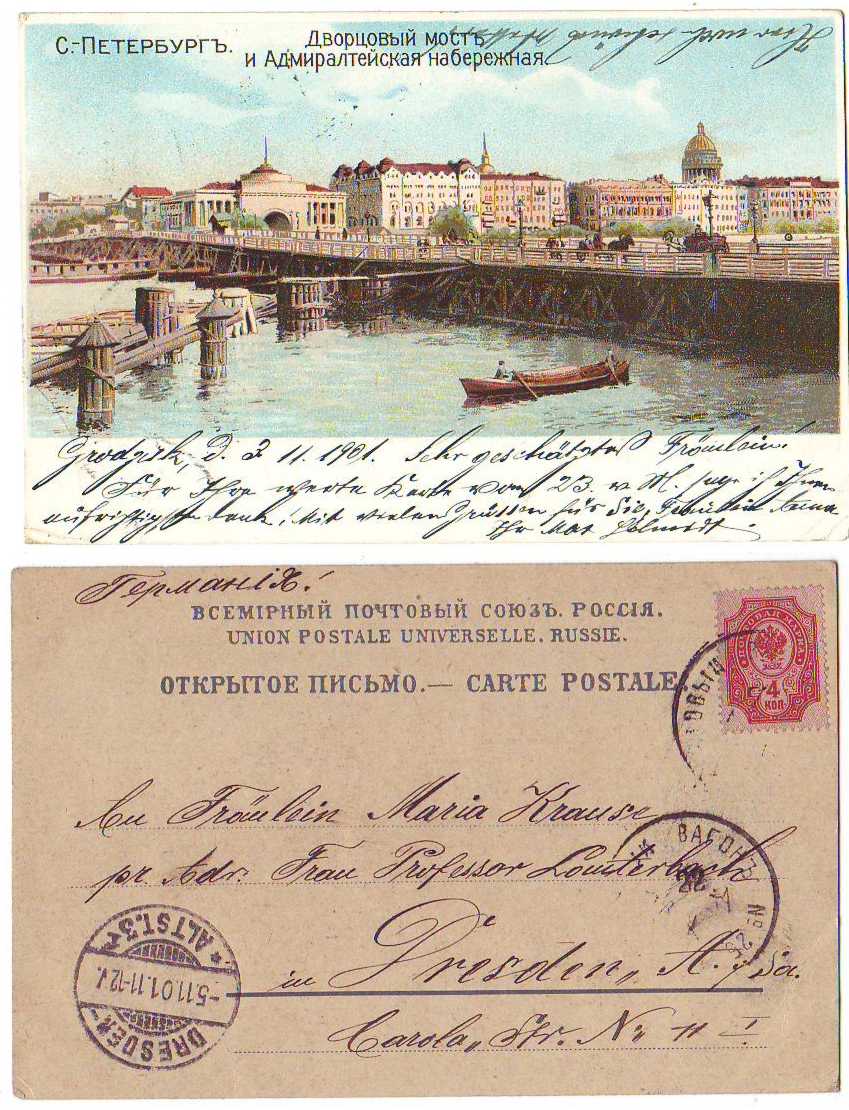 С.-ПЕТЕРБУРГЪ.
Дворцовый мостъ
и Адмиралтейская набережная.
Grodzisk, d. 3 11. 1901. Sehr geschätztes Fräulein!
Für Ihre werte Karte vom 23. v. M. sage ich Ihnen
aufrichtigsten Dank! Mit vielen Grüssen für Sie, Fräulein Anna
Ihr Max
Германія!
ВСЕМІРНЫЙ ПОЧТОВЫЙ СОЮЗЪ. РОССІЯ.
UNION POSTALE UNIVERSELLE. RUSSIE.
ОТКРЫТОЕ ПИСЬМО.— CARTE POSTALE
ПОЧТОВАЯ МАРКА
4
КОП
An Fräulein Maria Krause
pr. Adr. Frau Professor Lauterbach
in Dresden, A. / Sa.
Carola, Str. No 11 I
ВАГОНЪ
No 26
DRESDEN-
-5.11.01.11-12V.
* ALTST.3